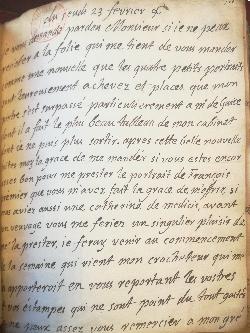 du jeudi 23 fevrier
je vous demande pardon Monsieur si je ne peux
resister a la folie qui me tient de vous mander
comme une nouvelle que les quatre petits portraits
sont heureusement achevez et places que mon
peintre s'est surpassé particulierement a m de Guise
dont il a fait le plus beau tableau de mon cabinet
dont je ne puis plus sortir. apres cette belle nouvelle
faites moy la grace de me mander si vous estes encor
assez bon pour me prester le portrait de françois
premier que vous m'avez fait la grace de m'ofrir si
vous aviez aussi une catherine de medicis avant
son veuvage vous me feriez un singulier plaisir de
me la prester. je feray venir au commencement
de la semaine qui vient mon crocheteur qui me
l'apporteroit en vous reportant les vostres
et vos estampes qui ne sont point du tout gastées
je ne peux assez vous remercier a mon gre